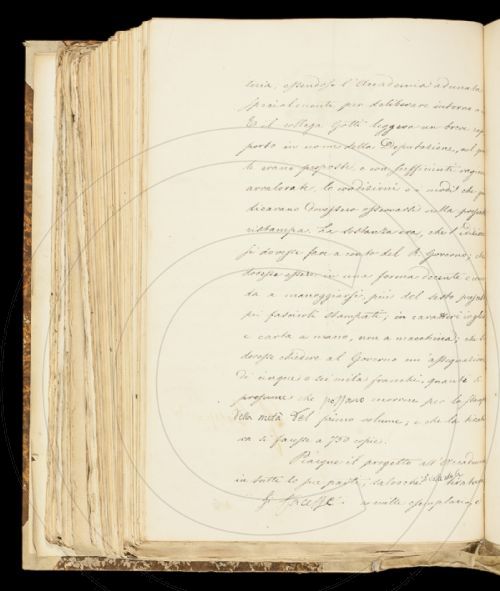 teria, essendosi l'Accademia adunata
specialmente per deliberare intorno a
E il collega Gotti leggeva un breve rap
porto in nome della Deputazione, nel qua
le erano proposte, e con sufficienti ragioni
avvalorate, le condizioni e i modi che gi
dicavano dovessero osservarsi nella present
ristampa. La sostanza era, che l'edizione
si dovesse fare a conto del R. Governo; che
dovesse essere in una forma decente e com
da a maneggiarsi, più del sesto
pei fascicoli stampati; in caratteri
e carta a mano, non a macchina; che
dovesse chiedere al Governo un'assegnazione
di cinque o sei mila franchi, quanti si
presume che possano occorrere per la stampa
della metà del primo volume; e che la tirat
ra si facesse a 750 copie.
Piacque il progetto all'Accademia
in tutte le sue parti; salvochè
esemplari